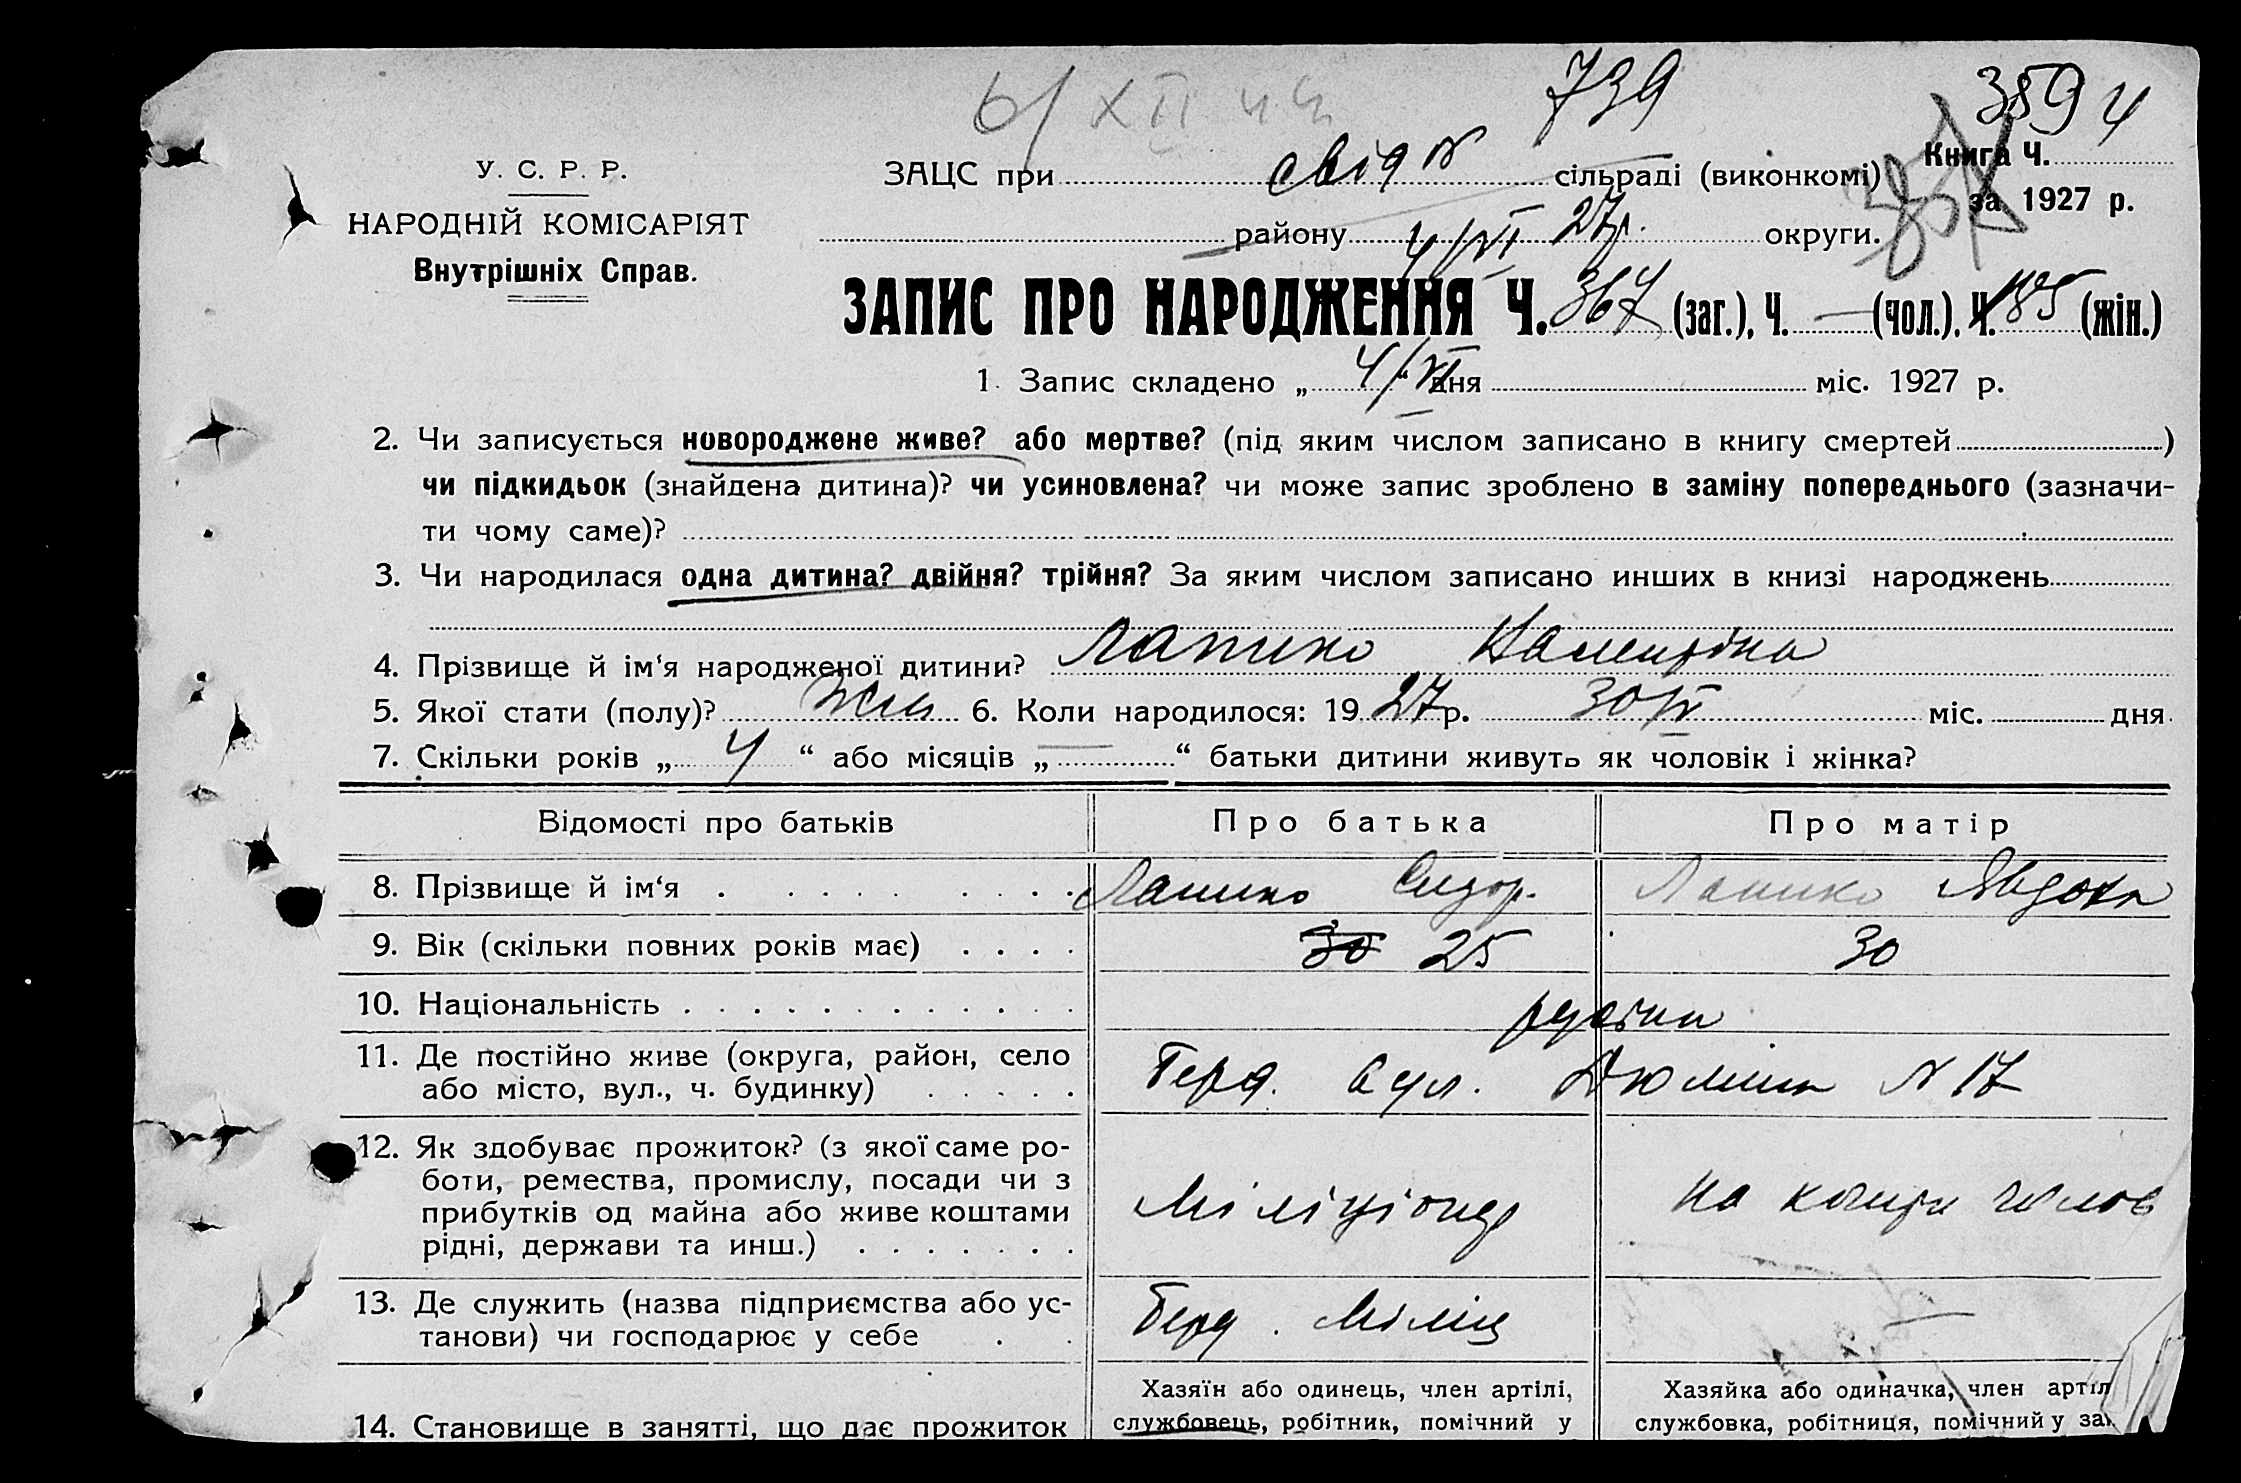 6/XII 44
739
359 4
У. С. Р. Р.
НАРОДНІЙ КОМІСАРІЯТ
Внутрішніх Справ.
Книга Ч.
за 1927 р.
ЗАЦС при свід № сільраді (виконкомі)
району 4/VI 27р. округи.
ЗАПИС ПРО НАРОДЖЕННЯ Ч. 367 (заг.), Ч. — (чол.), Ч. 185 (жін.)
1. Запис складено „ 4/VI “ дня міс. 1927 р.
2. Чи записується новороджене живе? або мертве? (під яким числом записано в книгу смертей )
чи підкидьок (знайдена дитина)? чи усиновлена? чи може запис зроблено в заміну попереднього (зазначи-
ти чому саме)?
3. Чи народилася одна дитина? двійня? трійня? За яким числом записано инших в книзі народжень
4. Прізвище й ім‘я народженої дитини?
5. Якої стати (полу)? Жін 6. Коли народилося: 19 27 р. 30/IV міс. дня
7. Скільки років „ 4 “ або місяців „ — “ батьки дитини живуть як чоловік і жінка?
Відомості про батьків Про батька Про матір
8. Прізвище й ім‘я Сидор. Явдоха
9. Вік (скільки повних років має) 30 25 30
10. Національність
11. Де постійно живе (округа, район, село
або місто, вул., ч. будинку) Берд. вул. Дюміна № 17
12. Як здобуває прожиток? (з якої саме ро-
боти, ремества, промислу, посади чи з
прибутків од майна або живе коштами
рідні, держави та инш.) Міліціонер На кошти чолов
13. Де служить (назва підприємства або ус-
танови) чи господарює у себе Берд. Міліц —
Хазяїн або одинець, член артілі, Хазяйка або одиначка, член артіл
14. Становище в занятті, що дає прожиток службовець, робітник, помічний у службовка, робітниця, помічний у за